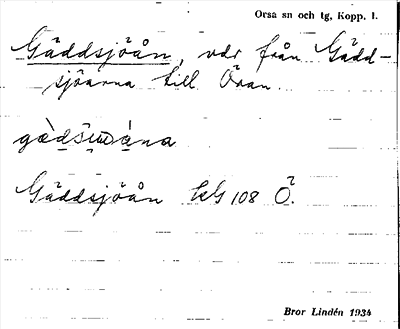 Orsa sn och tg, Kopp. l.
Gäddsjöån, vdr från Gädd-
sjöarna till Öran
Gäddsjöån kG 108 Ö.
Bror Lindén 1934